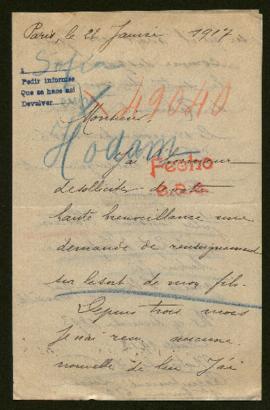 Paris, le 22 Janvier 1917
Pedir informes
Que se hace así
Devolver
49040
Monsieur
Hodam
J'ai l'honneur
Fecho
de solliciter de votre
haute bienveillance une
demande de renseignement
sur le sort de mon fils.
Depuis trois mois
je n'ai reçu aucune
nouvelle de lui J'ai